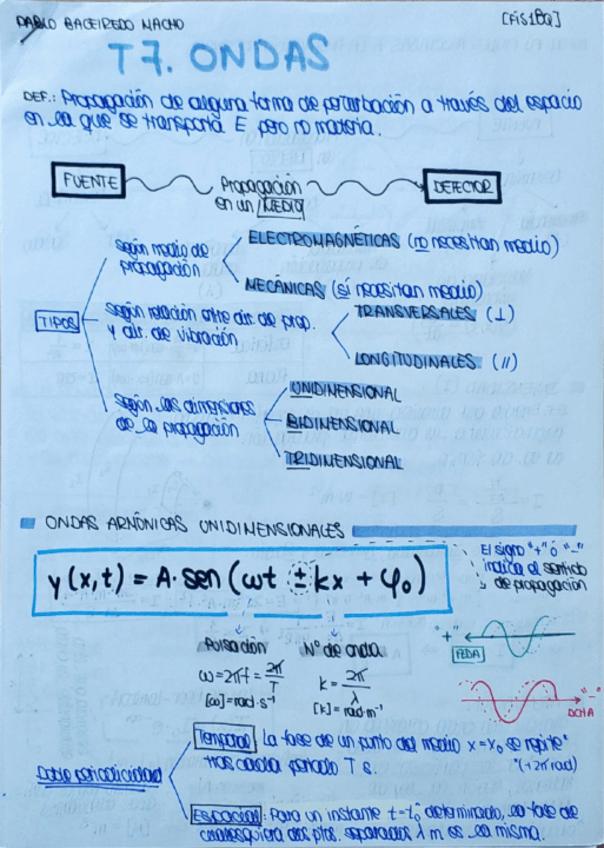 PABLO BACEIREDO NACHO
[FÍS1BQ]
T7. ONDAS
DEF.: Propagación de alguna forma de perturbación a través del espacio
en la que se transporta E pero no materia.
FUENTE
Propagación
en un MEDIO
DEFECTOR
TIPOS
Según medio de
propagación
ELECTROMAGNÉTICAS (no necesitan medio)
MECÁNICAS (sí necesitan medio)
Según relación entre dir. de prop.
y dir. de vibración
TRANSVERSALES (⊥)
LONGITUDINALES (//)
Según las dimensiones
de la propagación
UNIDIMENSIONAL
BIDIMENSIONAL
TRIDIMENSIONAL
ONDAS ARMÓNICAS UNIDIMENSIONALES
y(x,t) = A·sen(ωt ± kx + φ₀)
El signo "+" ó "-"
indica el sentido
de propagación
"+"
IZDA
"-"
DCHA
Pulsación
ω=2πf=2π/T
[ω]=rad·s⁻¹
Nº de onda
k=2π/λ
[k]=rad·m⁻¹
Doble periodicidad
Temporal: La fase de un punto del medio x=x₀ se repite*
tras cada periodo T s.
*(+2π rad)
Espacial: Para un instante t=t₀ determinado, la fase de
cualesquiera dos ptos. separados λ m es la misma.